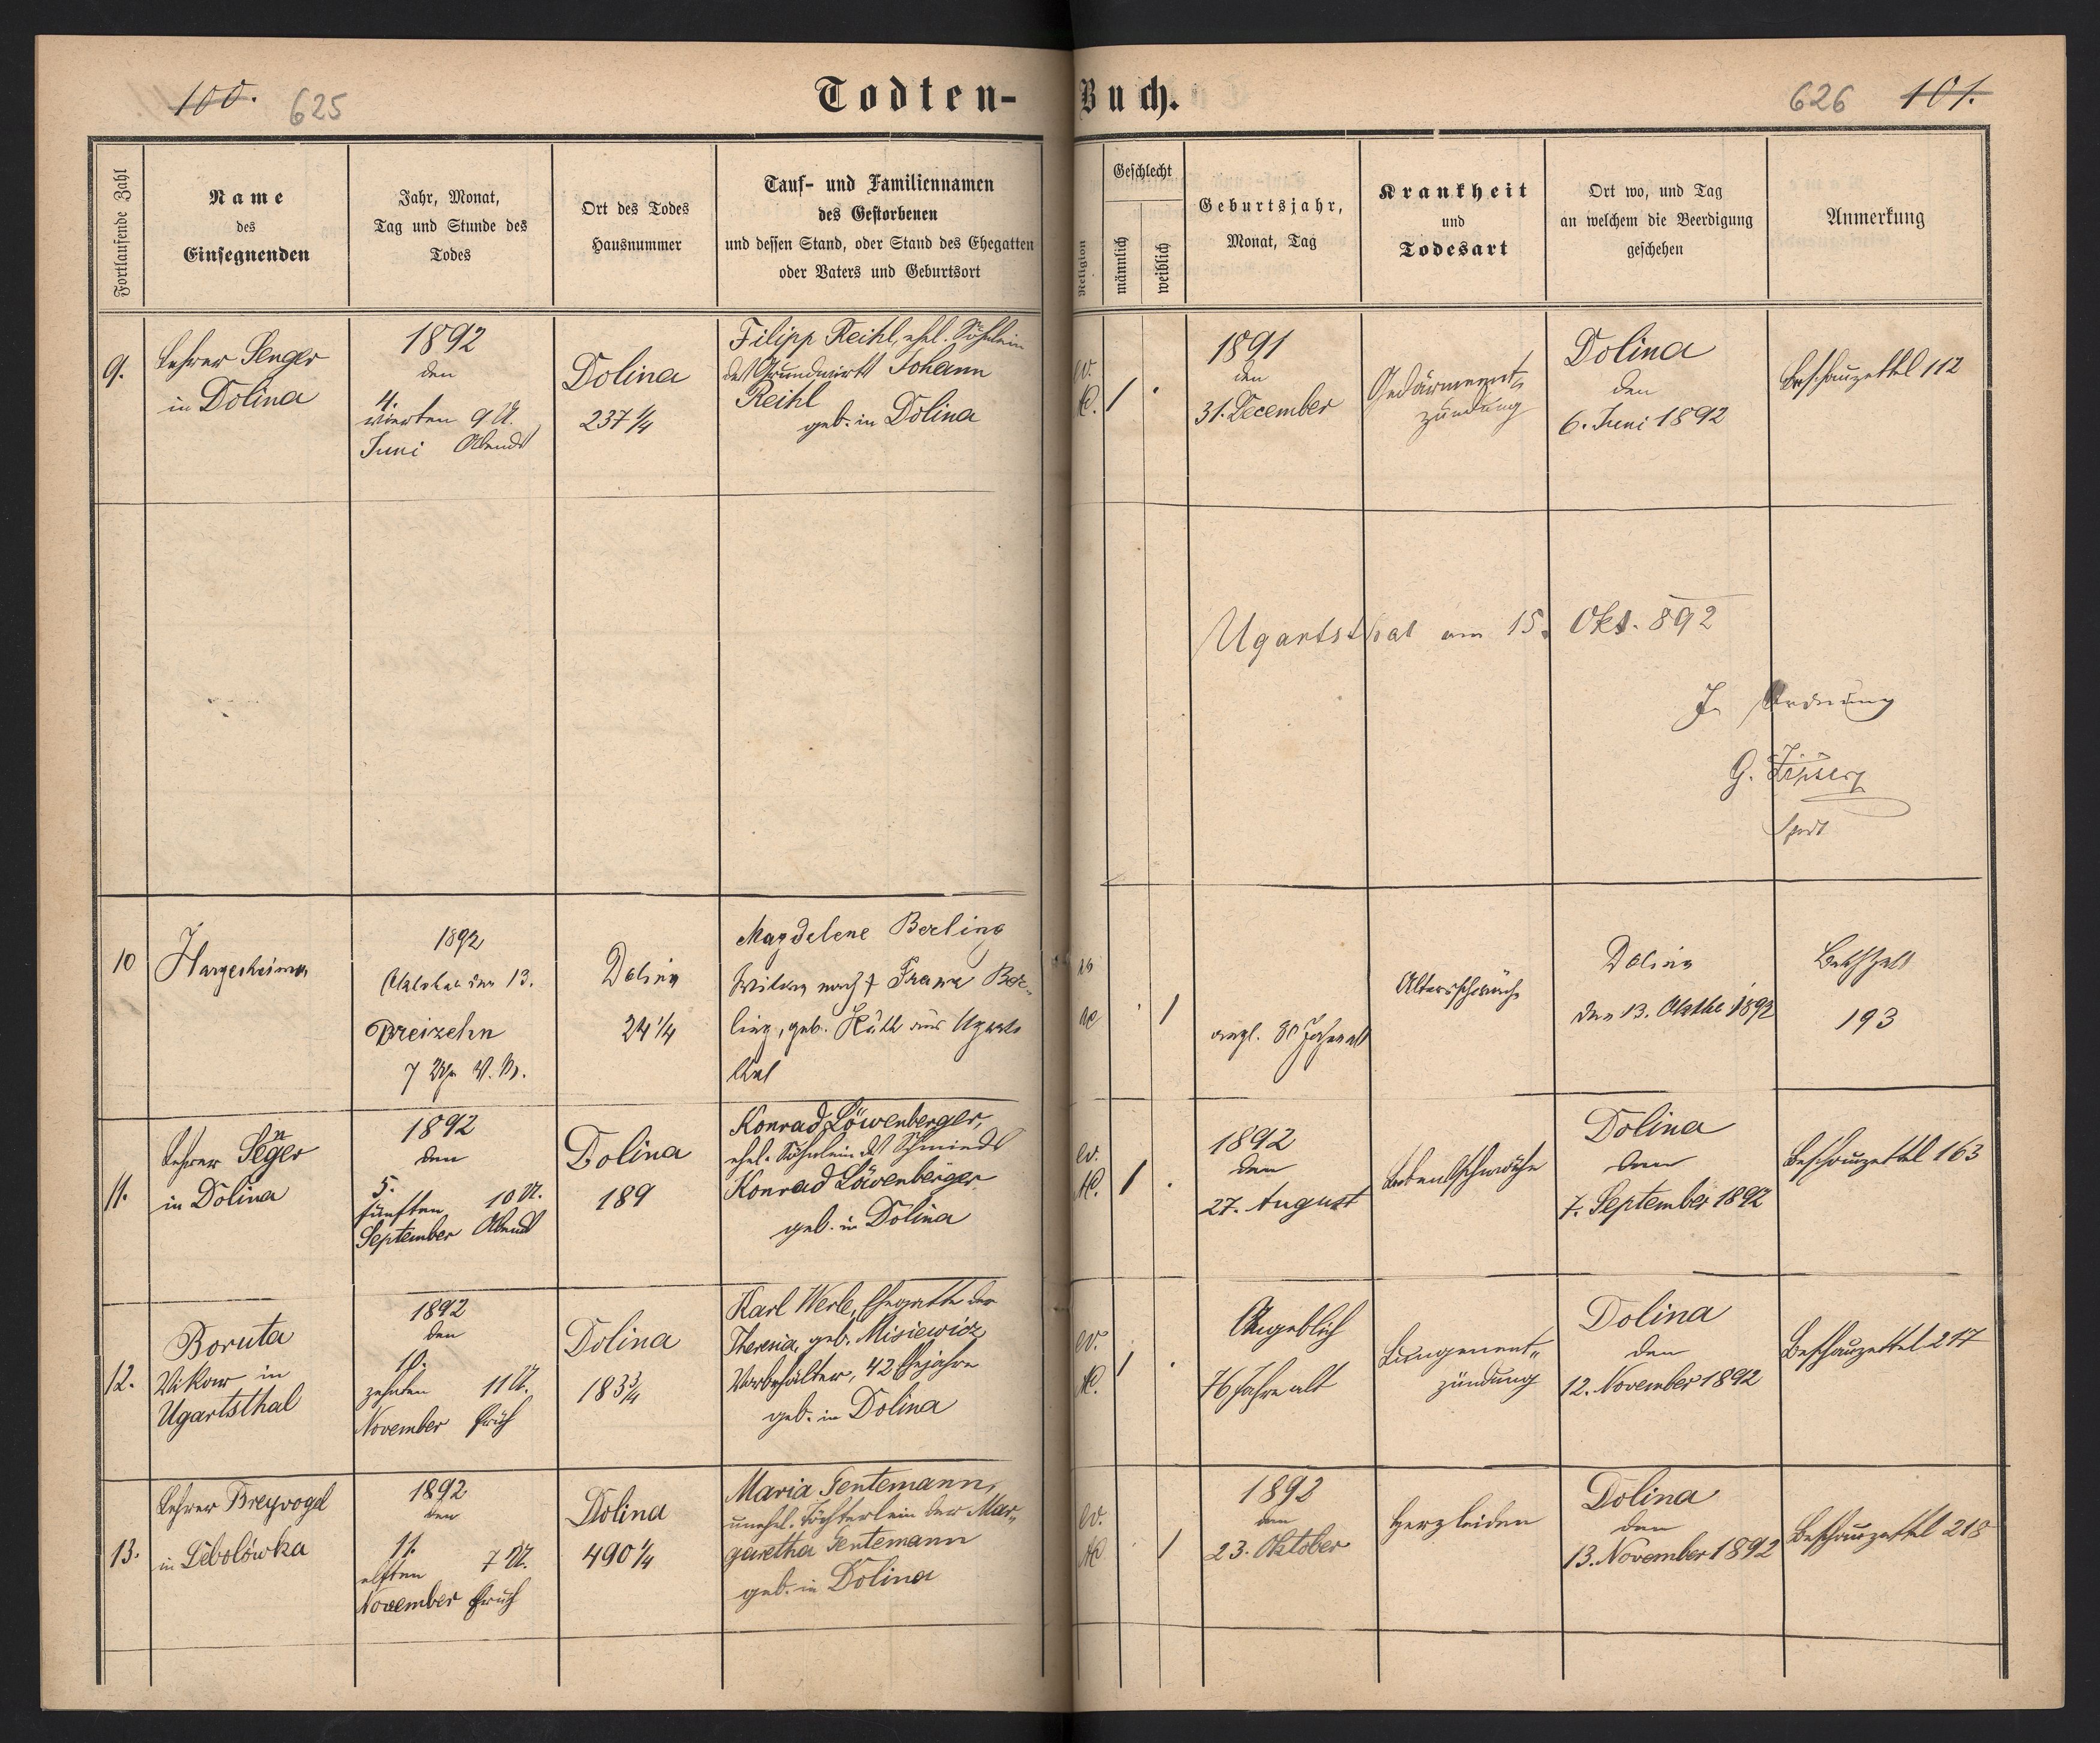 100. 625
Todten-Buch.
626 101.
Fortlaufende Zahl
Name
des
Einsegnenden
Jahr, Monat,
Tag und Stunde des
Todes
Ort des Todes
Hausnummer
Tauf- und Familiennamen
des Gestorbenen
und dessen Stand, oder Stand des Ehegatten
oder Vaters und Geburtsort
Religion
Geschlecht
männlich
weiblich
Geburtsjahr,
Monat, Tag
Krankheit
und
Todesart
Ort wo, und Tag
an welchem die Beerdigung
geschehen
Anmerkung
9.
Lehrer Senger
in Dolina
1892
den
4.
vierten 9 U.
Juni Abends
Dolina
237 1/4
Filipp Reihl, ehel. Söhnlein
des Grundwirts Johann
Reihl
geb. in Dolina
ev.
AC.
/ .
1891
den
31. December
Gedärment-
zündung
Dolina
den
6. Juni 1892
Beschauzettel 112
Ugartsthal am 15. Okt. 892
In Ordnung
G.
10
1892
den 13.
Dreizehn
7 Uhr V. M.
Dolina
24 1/4
Magdelene Berling
Witwe nach † Franz Ber-
ling, geb. Huth aus Ugarts
thal
ev
AC
. /
angl. 80 Jahre alt
Altersschwäche
Dolina
den 13. Oktbr 1892
193
11.
Lehrer Senger
in Dolina
1892
den
5.
fünften 10 U.
September Abends
Dolina
189
Konrad Löwenberger,
ehel. Söhnlein des Schmieds
Konrad Löwenberger
geb. in Dolina
ev.
AC.
/ .
1892
den
27. August
Lebensschwäche
Dolina
den
7. September 1892
Beschauzettel 163
12.
Boruta
Vikar in
Ugartsthal
1892
den
10.
zehnten 11 U.
November früh
Dolina
183 3/4
Karl Werle, Ehegatte der
Theresia, geb. Misiewicz
Vorbehälter, 42 Ehejahre
geb. in Dolina
ev.
AC.
/ .
Angeblich
76 Jahre alt
Lungenent-
zündung
Dolina
den
12. November 1892
Beschauzettel 217
13.
Lehrer Breyvogel
in Debolówka
1892
den
11.
elften 7 U.
November früh
Dolina
490 1/4
Maria Gentemann,
unehel. Töchterlein der Mar-
garetha Gentemann
geb. in Dolina
ev.
AC
. /
1892
den
23. Oktober
Herzleiden
Dolina
den
13. November 1892
Beschauzettel 218